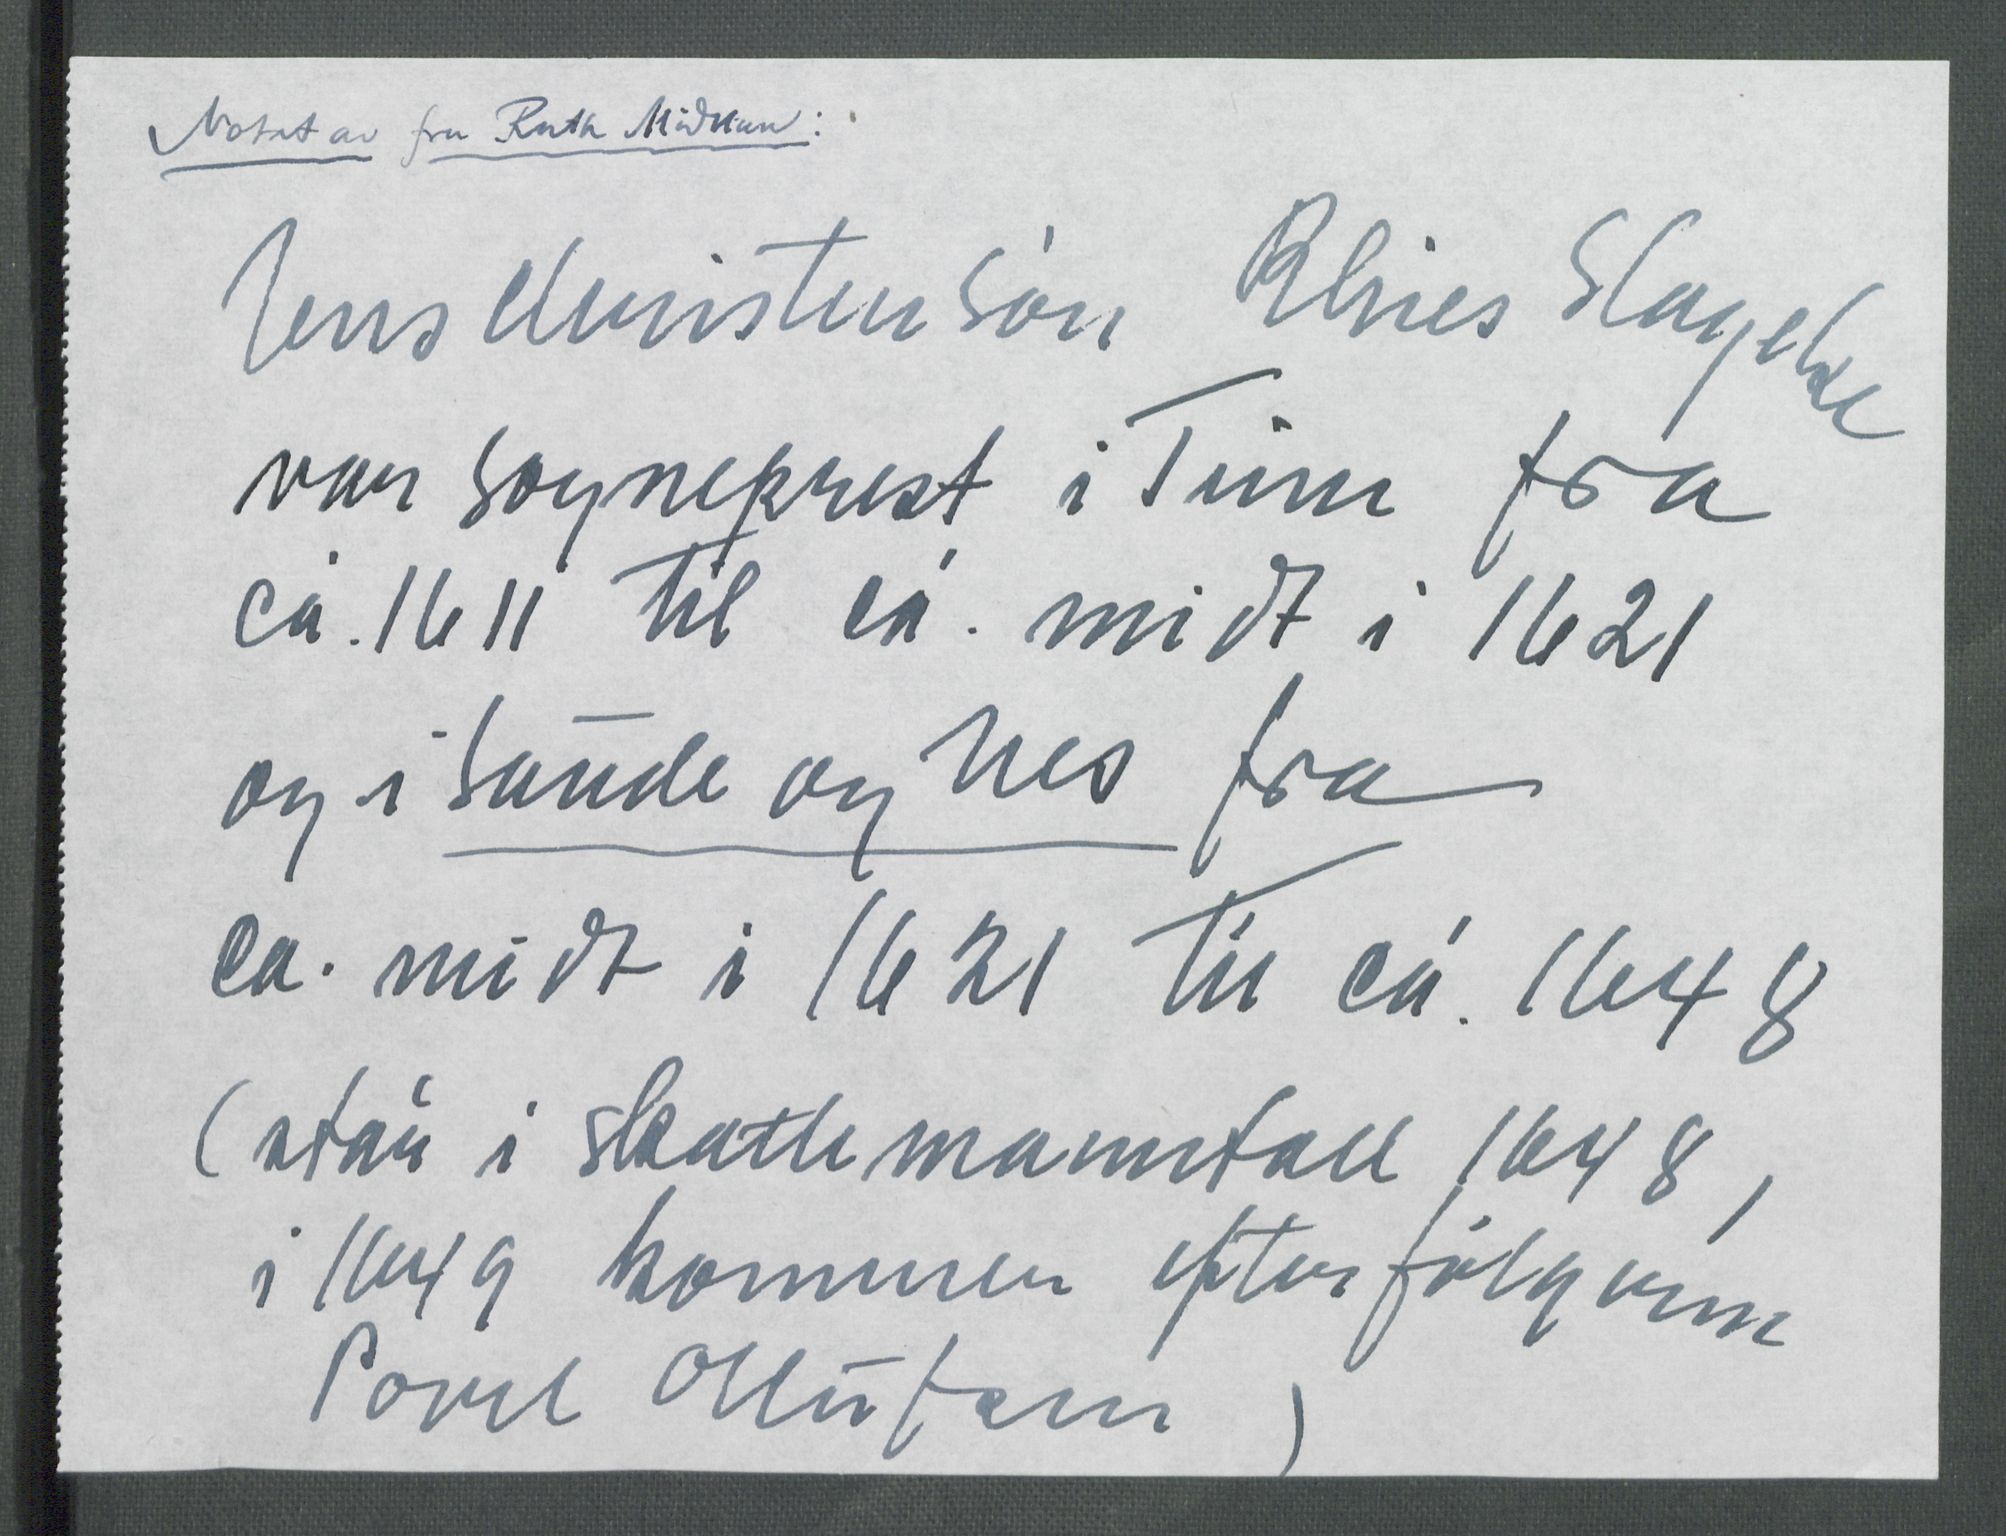 Notat av fru Ruth
Jens Christensøn Rhies Slagelse
var sogneprest i Tinn fra
ca. 1611 til ca. midt i 1621
og i Saude og Nes fra
ca. midt i 1621 til ca. 1648
(står i skattemanntall 1648,
i 1649 kommer efterfølgeren
Povel Ollufsen)